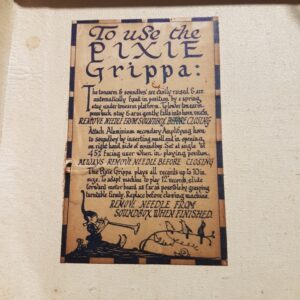 To use the
PIXIE
Grippa:
The tonearm & soundbox are easily raised & are
automatically fixed in position by a spring,
stay under tonearm platform. To lower tonearm
press back stay & arm gently falls into horn mouth.
REMOVE NEEDLE FROM SOUNDBOX BEFORE CLOSING
Attach Aluminium secondary Amplifying horn
to soundbox by inserting small end in opening
on right hand side of soundbox. Set at angle of
45% facing user when in playing position.
ALWAYS REMOVE NEEDLE BEFORE CLOSING
The Pixie Grippa plays all records up to 10in.
size. To adapt machine to play 12 records, slide
forward motor board as far as possible by grasping
turntable firmly. Replace before closing machine.
REMOVE NEEDLE FROM
SOUNDBOX WHEN FINISHED.